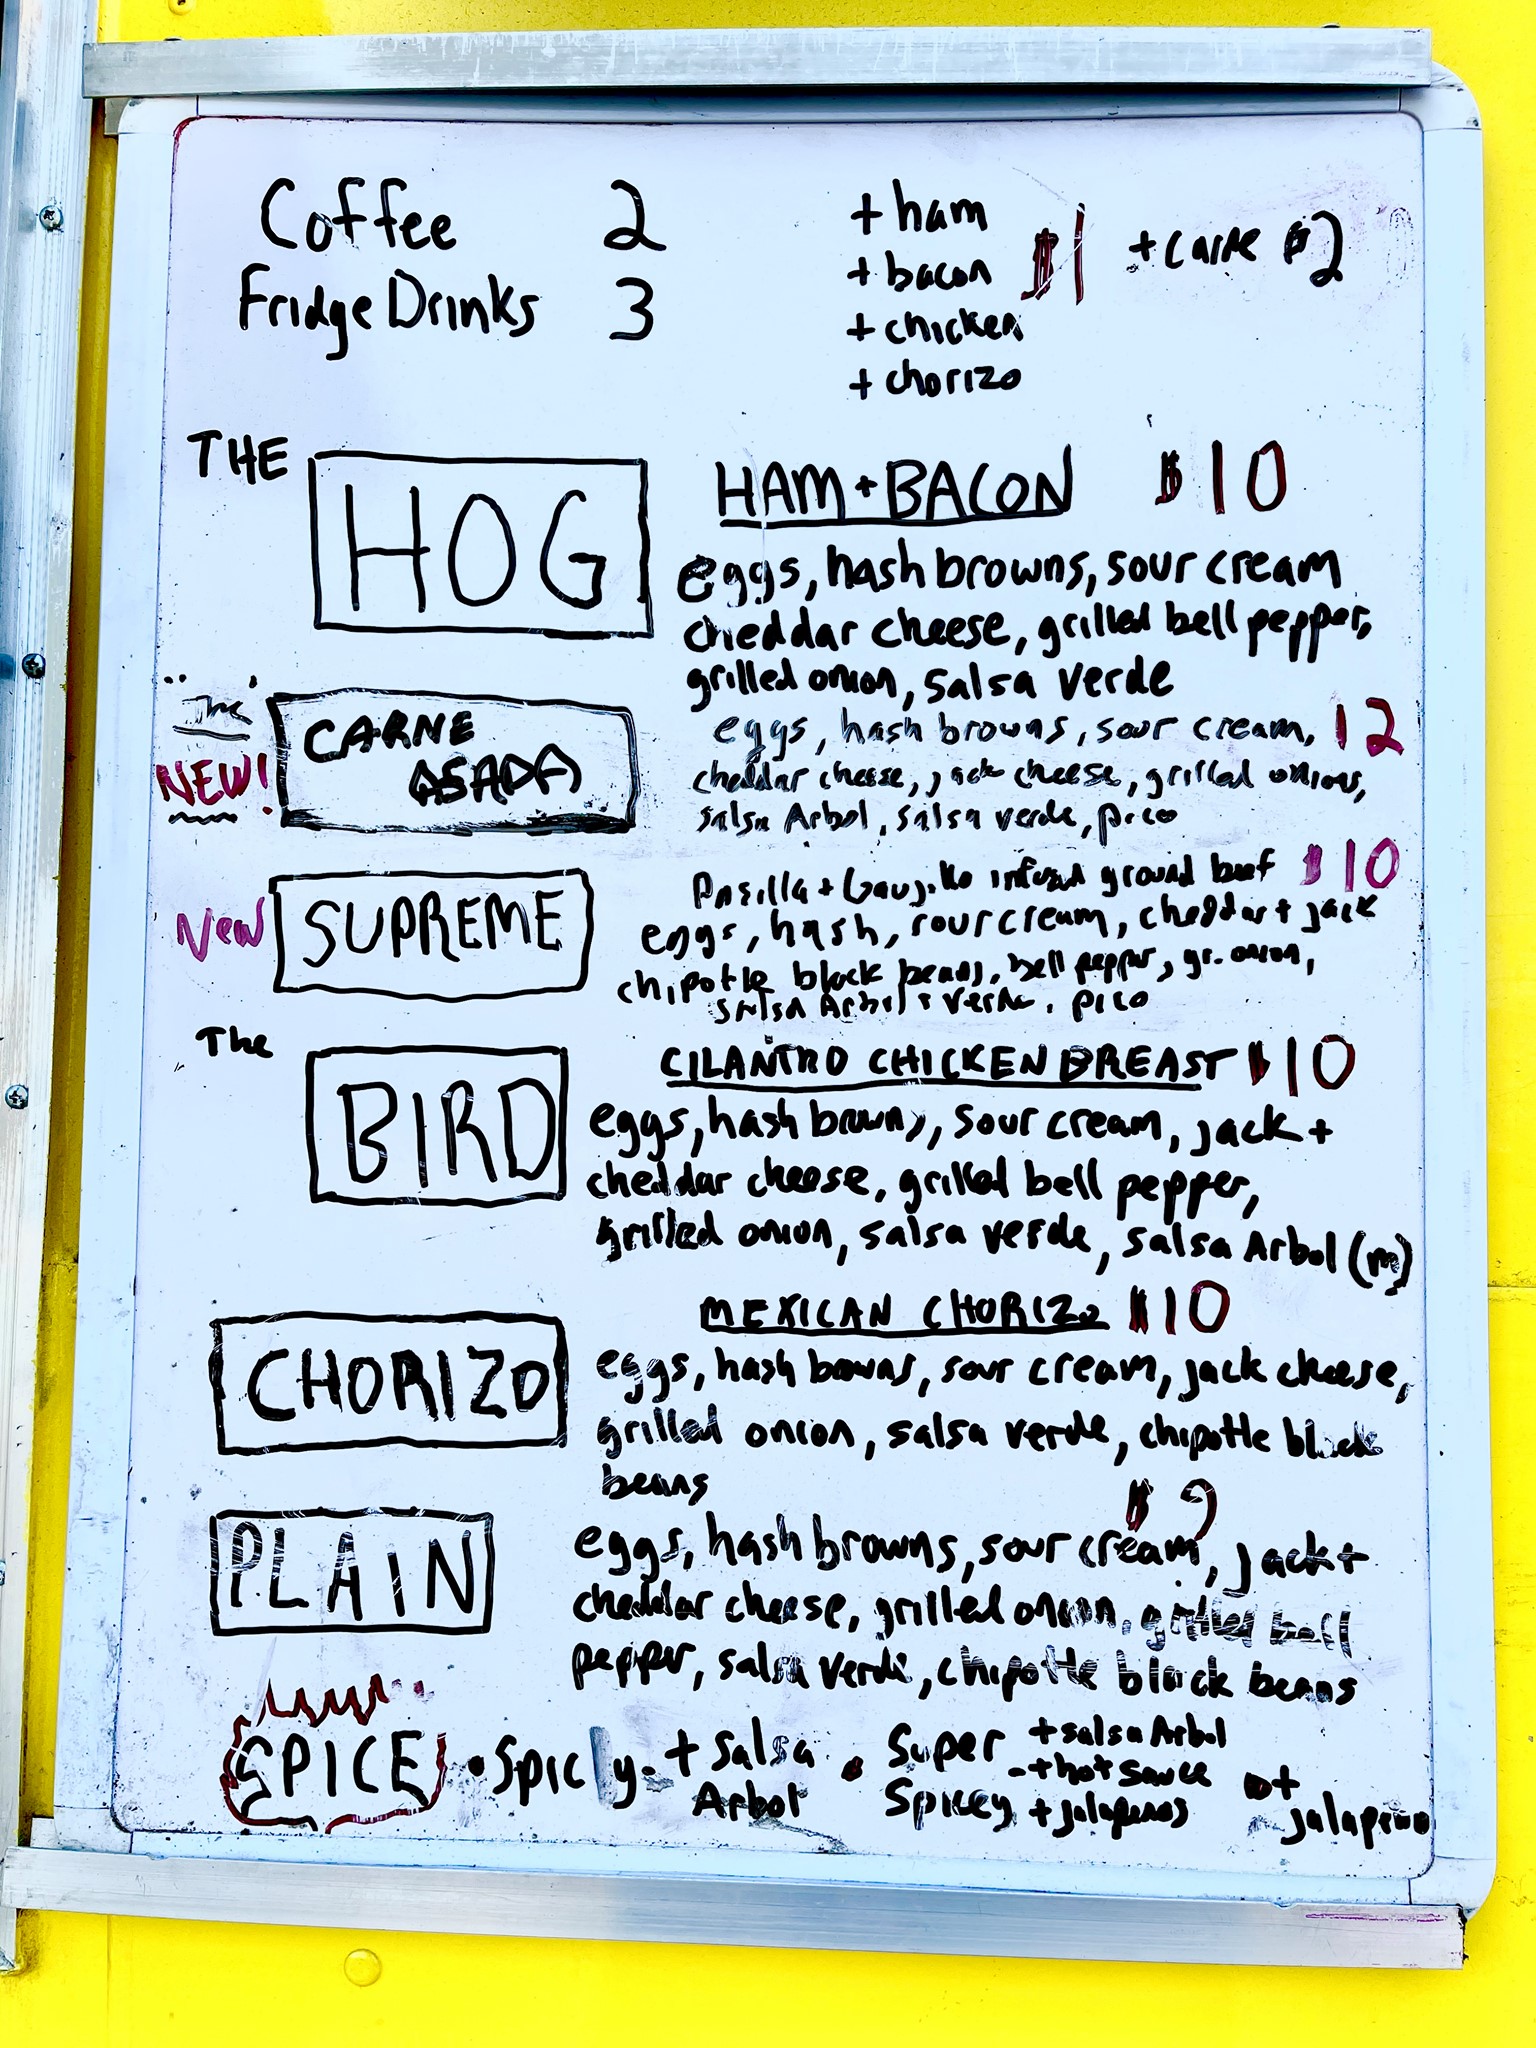 Coffee 2
Fridge Drinks 3
+ ham
+ bacon
+ chicken
+ chorizo
$1
+ carne $2
THE
HOG
HAM + BACON $10
eggs, hash browns, sour cream
cheddar cheese, grilled bell pepper,
grilled onion, salsa verde
The
NEW!
CARNE
ASADA
eggs, hash browns, sour cream, 12
cheddar cheese, jack cheese, grilled onions,
salsa Arbol, salsa verde, pico
New
SUPREME
Pasilla + Guajillo infused ground beef $10
eggs, hash, sour cream, cheddar + jack
chipotle black beans, bell pepper, gr. onion,
salsa Arbol + verde, pico
The
BIRD
CILANTRO CHICKEN BREAST $10
eggs, hash browns, sour cream, jack +
cheddar cheese, grilled bell pepper,
grilled onion, salsa verde, salsa Arbol (m)
CHORIZO
MEXICAN CHORIZO $10
eggs, hash browns, sour cream, jack cheese,
grilled onion, salsa verde, chipotle black
beans
PLAIN
$9
eggs, hash browns, sour cream, jack +
cheddar cheese, grilled onion, grilled bell
pepper, salsa verde, chipotle black beans
SPICE
• Spicy - + Salsa
Arbol
• Super
Spicey
+ salsa Arbol
+ hot sauce
+ jalapenos
+
jalapeno